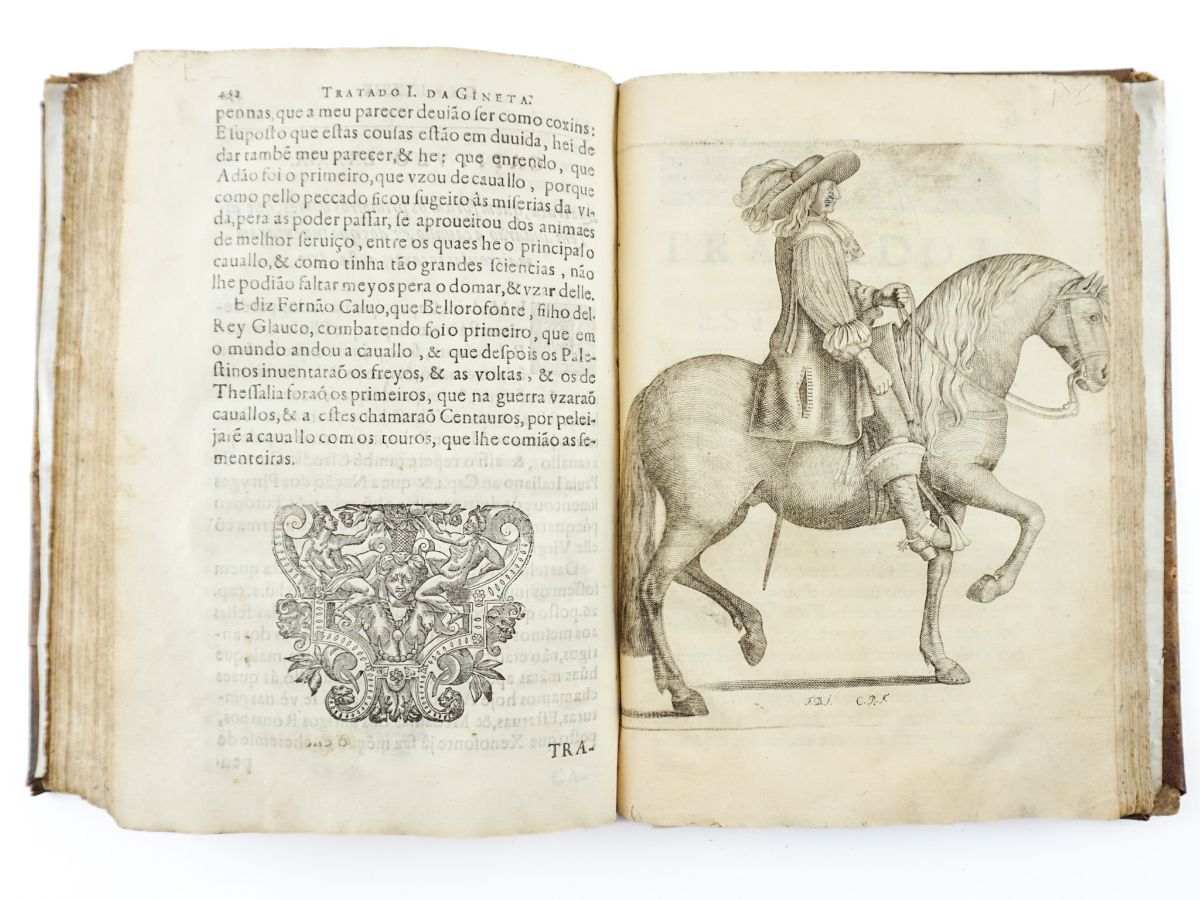 452 TRATADO I. DA GINETA.
pennas, que a meu parecer deuião ser como coxins:
E ſupoſto que eſtas couſas eſtão em duuida, hei de
dar tambẽ meu parecer, & he: que entendo, que
Adão foi o primeiro, que vzou de cauallo, porque
como pello peccado ficou ſugeito âs miſerias da vi-
da, pera as poder paſſar, ſe aproueitou dos animaes
de melhor ſeruiço, entre os quaes he o principal o
cauallo, & como tinha tão grandes ſciencias, não
lhe podião faltar meyos pera o domar, & vzar delle.
E diz Fernão Caluo, que Bellorofonte, filho del-
Rey Glauco, combatendo foi o primeiro, que em
o mundo andou a cauallo, & que deſpois os Pale-
ſtinos inuentaraõ os freyos, & as voltas, & os de
Theſſalia foraõ os primeiros, que na guerra vzaraõ
cauallos, & a eſtes chamaraõ Centauros, por pelei-
jarẽ a cauallo com os touros, que lhe comião as ſe-
menteiras.
TRA-
F.D.I. C.B.F.